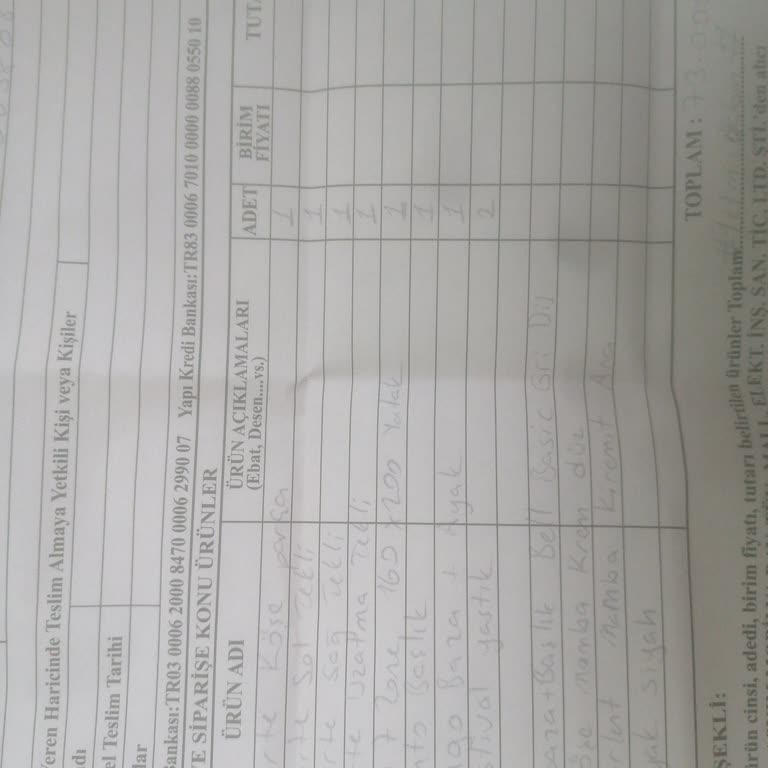 Veren Haricinde Teslim Almaya Yetkili Kişi veya Kişiler
dı
el Teslim Tarihi
lar
Bankası:TR03 0006 2000 8470 0006 2990 07 Yapı Kredi Bankası:TR83 0006 7010 0000 0088 0550 10
E SİPARİŞE KONU ÜRÜNLER
ÜRÜN ADI ÜRÜN AÇIKLAMALARI ADET BİRİM TUTA
(Ebat, Desen....vs.) FİYATI
rte Köşe parça 1
rte Sol Tekli 1
rte Sağ Tekli 1
te Uzatma Tekli 1
7 Zone 160 x 200 Yatak 1
nto Başlık 1
ngo Baza + Ayak 1
stival yastık 2
aza+Başlık Bell Basic Gri Düz
öşe mamba Krem düz
rlent mamba Kiremit Ana
yak siyah
TOPLAM : 73.000
ŞEKLİ:
ürün cinsi, adedi, birim fiyatı, tutarı belirtilen ürünler Toplam
ELEKT. İNŞ. SAN. TİC. LTD. ŞTİ.'den alıcı